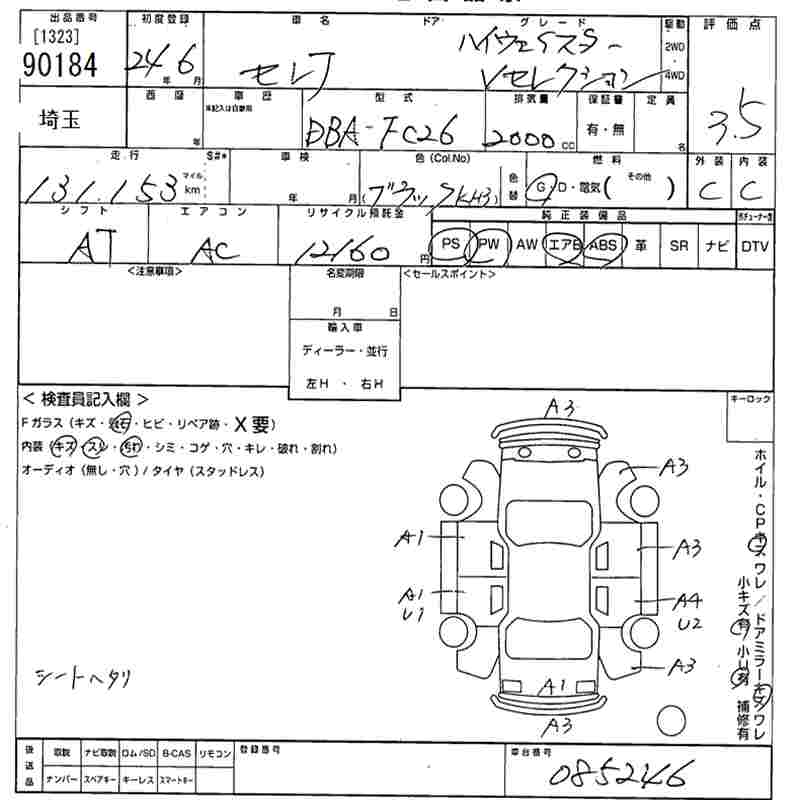 出品番号 初度登録 車名 ドア グレード 駆動 評価点
[1323]
90184 24年6月 セレナ ハイウェイスター 2WD
Vセレクション 4WD
埼玉 西暦 車歴 型式 排気量 保証書 定員
年 本記入は自家用 DBA-FC26 2000cc 有・無 名 3.5
走行 S#* 車検 色(Col.No) 燃料 外装 内装
131,153 マイル km 年 月 ブラック(KH3) 色替 G・D・電気( その他 ) C C
シフト エアコン リサイクル預託金 純正装備品 地デジチューナー含
AT AC 12160円 PS PW AW エアB ABS 革 SR ナビ DTV
<注意事項> 名変期限 <セールスポイント>
月 日
輸入車
ディーラー・並行
左H ・ 右H
< 検査員記入欄 > キーロック
Fガラス(キズ・飛石・ヒビ・リペア跡・X要)
内装(キズ・スレ・汚れ・シミ・コゲ・穴・キレ・破れ・割れ)
オーディオ(無し・穴)/タイヤ(スタッドレス)
A3
A3
A1 A3
A1 A4
U1 U2
A3
A1
A3
ホイル・CPキズワレ/ドアミラーキズワレ
小キズ有 小U有 補修有
シートヘタリ
後送品 取説 ナビ取説 ロム/SD B-CAS リモコン 登録番号 車台番号
ナンバー スペアキー キーレス スマートキー 085246